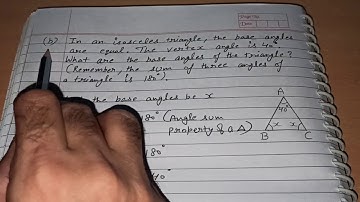 (b) In an isosceles triangle, the base angles
are equal. The vertex angle is 40°.
What are the base angles of the triangle?
(Remember, the sum of three angles of
a triangle is 180°).
the base angles be x
180° (Angle sum
property of a Δ)
180°
40°
A
40°
x x
B C